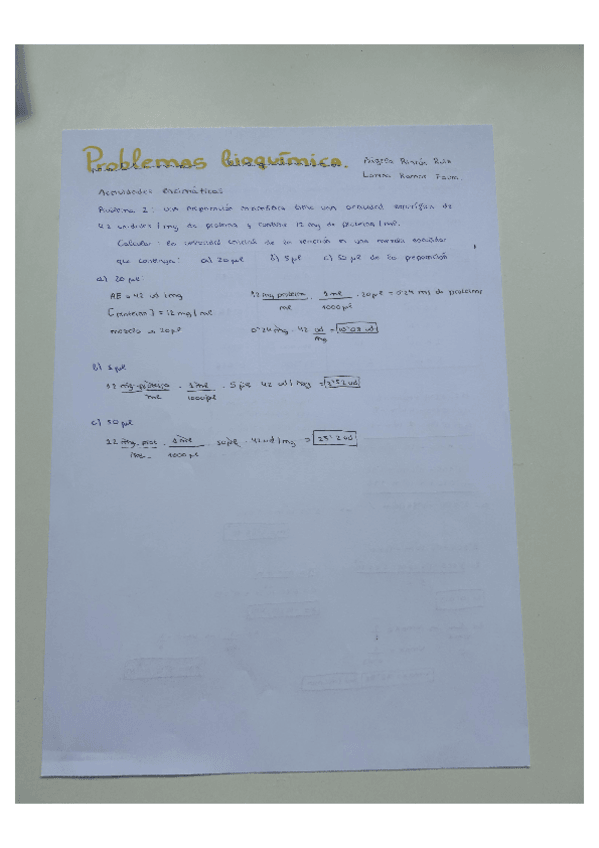 Problemas bioquímica.
Lorena
Actividades enzimáticas
Problema 2: una preparación enzimática tiene una actividad específica de
42 unidades / mg de proteína y contiene 12 mg de proteína / ml.
Calcular: la velocidad inicial de la reacción en una mezcla
que contenga: a) 20 µl b) 5 µl c) 50 µl de la preparación
a) 20 µl:
AE = 42 ud / mg
12 mg proteína / ml · 1 ml / 1000 µl · 20 µl = 0'24 mg de proteína
[proteína] = 12 mg / ml
mezcla 20 µl
0'24 mg · 42 ud / mg = 10'08 ud
b) 5 µl
12 mg / ml · 1 ml / 1000 µl · 5 µl 42 ud / mg = 2'52 ud
c) 50 µl
12 mg / ml · 1 ml / 1000 µl · 50 µl · 42 ud / mg = 25'2 ud